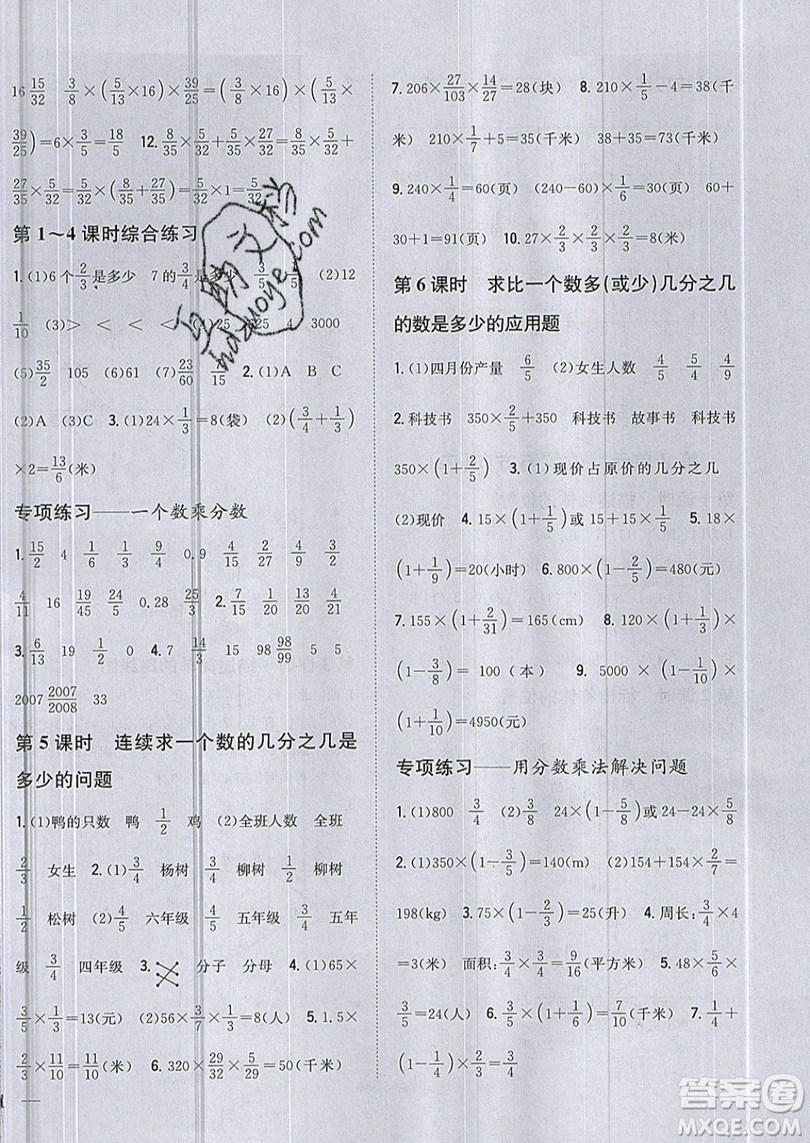 16 15/32 3/8×(5/13×16)×39/25=(3/8×16)×(5/13×
39/25)=6×3/5=18/5 12. 8/35×5/32+5/32×27/35=8/35×5/32+
27/35×5/32=(8/35+27/35)×5/32=1×5/32=5/32
第1～4课时综合练习
1.(1)6个2/3是多少 7的3/4是多少 3/5 5/3 (2)12
1/10 (3)> < < < (4)25 25 4 3000
(5)35/2 105 (6)60 23/60 7/15 2.(1)A B C
(2)A (3)C 3.(1)24×1/3=8(袋) (2)(3/4+1/3)
×2=13/6(米)
专项练习——一个数乘分数
1. 15/2 4 1/6 1/3 0.9 4/15 3/4
4/11 16 19/45 24/5 0.28 25/3 2. 7/15
3. 6/13 19 0 4.7 14/3 15 98 98/99 5 5
2007 2007/2008 33
第5课时 连续求一个数的几分之几是
多少的问题
1.(1)鸭的只数 鸭 1/2 鸡 (2)全班人数 全班
2/3 女生 2.(1)3/4 杨树 3/4 柳树 1/2 柳树
1/2 松树 (2)4/5 六年级 4/5 五年级 3/4 五年
级 3/4 四年级 3. 分子 分母 4.(1)65×
3/5×1/3=13(元) (2)56×3/7×1/3=8(人) 5. 1.5×
2/3×11/10=11/10(米) 6. 320×29/32×5/29=50(千米)
7. 206×27/103×14/27=28(块) 8. 210×1/5-4=38(千
米) 210×1/7+5=35(千米) 60+38+35=133(千米)
9. 240×1/4=60(页) (240-60)×1/6=30(页) 60+
30+1=91(页) 10. 27×2/3×2/3×2/3=8(米)
第6课时 求比一个数多(或少)几分之几
的数是多少的应用题
1.(1)四月份产量 6/5 (2)女生人数 4/9 5/4 4/9
2.科技书 350×2/5+350 科技书 故事书 科技书
350×(1+2/5) 3.(1)现价占原价的几分之几
(2)现价 4. 15×(1+1/5)或 15+15×1/5 5. 18×
(1+1/9)=20(小时) 6. 800×(1-2/5)=480(元)
7. 155×(1+2/31)=165(cm) 8. 120×(1+1/3)×
(1-3/8)=100(本) 9. 5000×(1-1/10)×
(1+1/10)=4950(元)
专项练习——用分数乘法解决问题
1.(1)800 3/4 (2)3/8 24×(1-5/8)或24-24×5/8
2.(1)350×(1-3/5)=140(m) (2)154+154×2/7=
198(kg) 3. 75×(1-2/3)=25(升) 4.周长:3/4×4
=3(米) 面积:3/4×3/4=9/16(平方米) 5. 48×5/6×
3/5=24(人) 6. 3/5×(1+1/6)=7/10(千米) 7. 3/4
+(1-3/4)-1/4=3/4
互助文档
huzuoye.com
答案圈
MXQE.COM